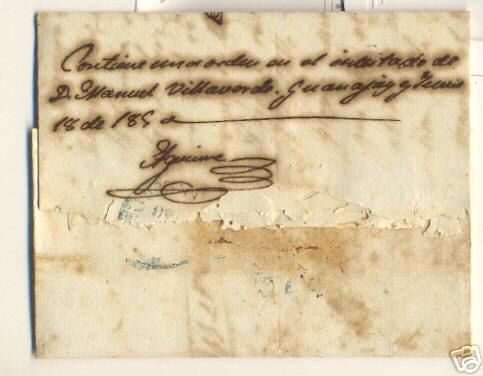 Contiene una orden en el intestado de
D. Manuel Villaverde. Guanajay y Junio
18 de 185 a
Aguirre
ebY